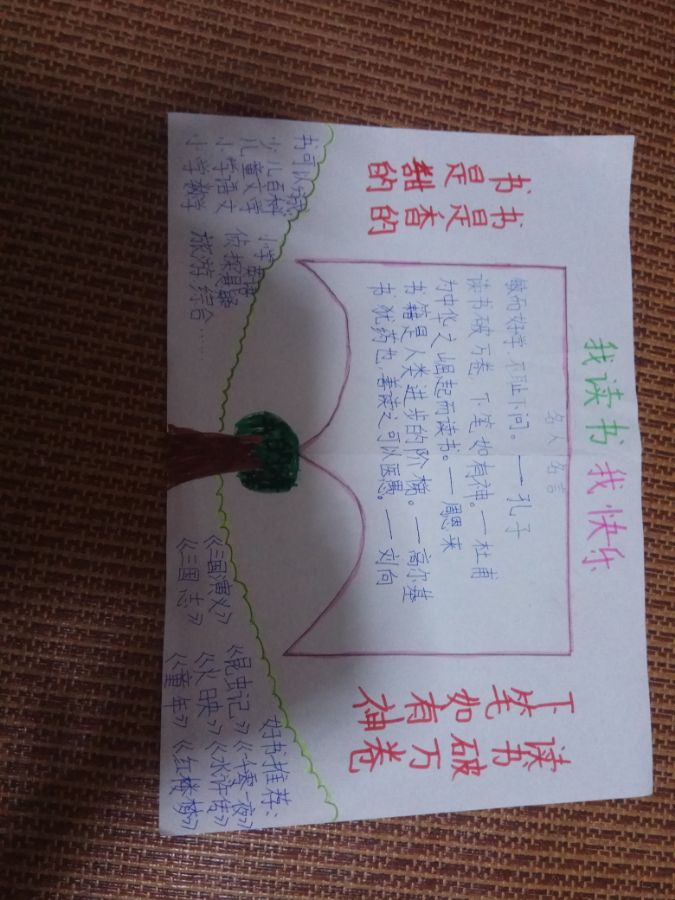 我读书 我快乐
书是甜的
书是香的
名人名言
敏而好学,不耻下问。——孔子
读书破万卷,下笔如有神。——杜甫
为中华之崛起而读书。——周恩来
书籍是人类进步的阶梯。——高尔基
书犹药也,善读之可以医愚。——刘向
读书破万卷
下笔如有神
书可以
少儿百科 小学
儿童文学 侦探悬疑
小学语文 旅游 综合……
小学数学
好书推荐:
《昆虫记》《一千零一夜》
《三国演义》《火印》《水浒传》
《三国志》《童年》《红楼梦》